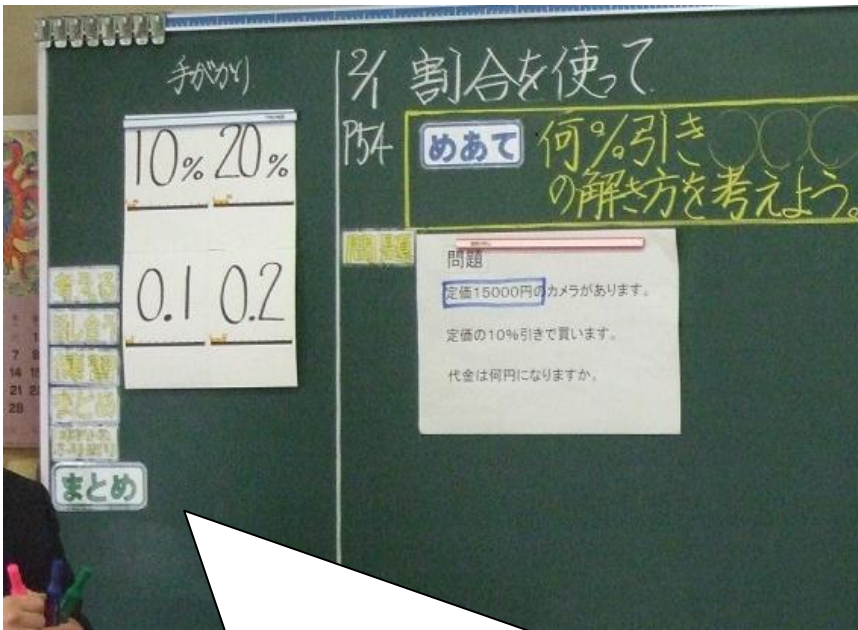 手がかり
10% 20%
0.1 0.2
考える
話し合う
練習
まとめ
まとめ
2/1 割合を使って
P54
めあて
何%引き○○○
の解き方を考えよう。
問題
問題
定価15000円のカメラがあります。
定価の10%引きで買います。
代金は何円になりますか。
7
14
21
28